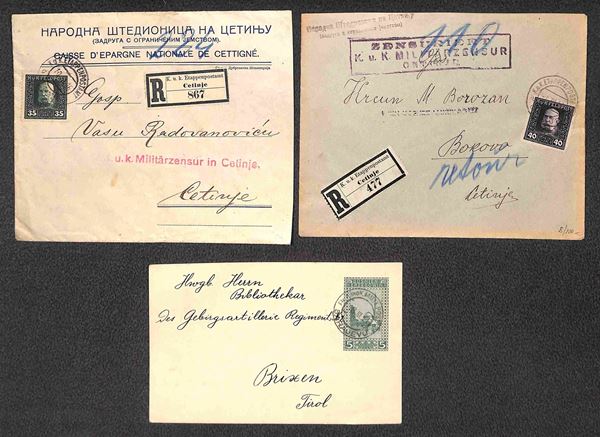 НАРОДНА ШТЕДИОНИЦА НА ЦЕТИЊУ
(ЗАДРУГА С ОГРАНИЧЕНИМ ЈЕМСТВОМ).
CAISSE D'EPARGNE NATIONALE DE CETTIGNÉ.
K.u.K. FELDPOST
35 35
K. u. k. Etappenpostamt
Cetinje
867
Gosp
Vasu Radovanoviću
u.k. Militärzensur in Cetinje.
Cetinje
Народна Штедионица на Цетињу
116
ZENSURIERT
K. u. K. MILITÄRZENSUR
CETINJE
Hrcun M Borozan
Bokovo
retour
Cetinje
40 40
K. u. k. Etappenpostamt
Cetinje
477
Hwgb. Herrn
Bibliothekar
des Gebirgsartillerie Regiments
Brixen
Tirol
5 5